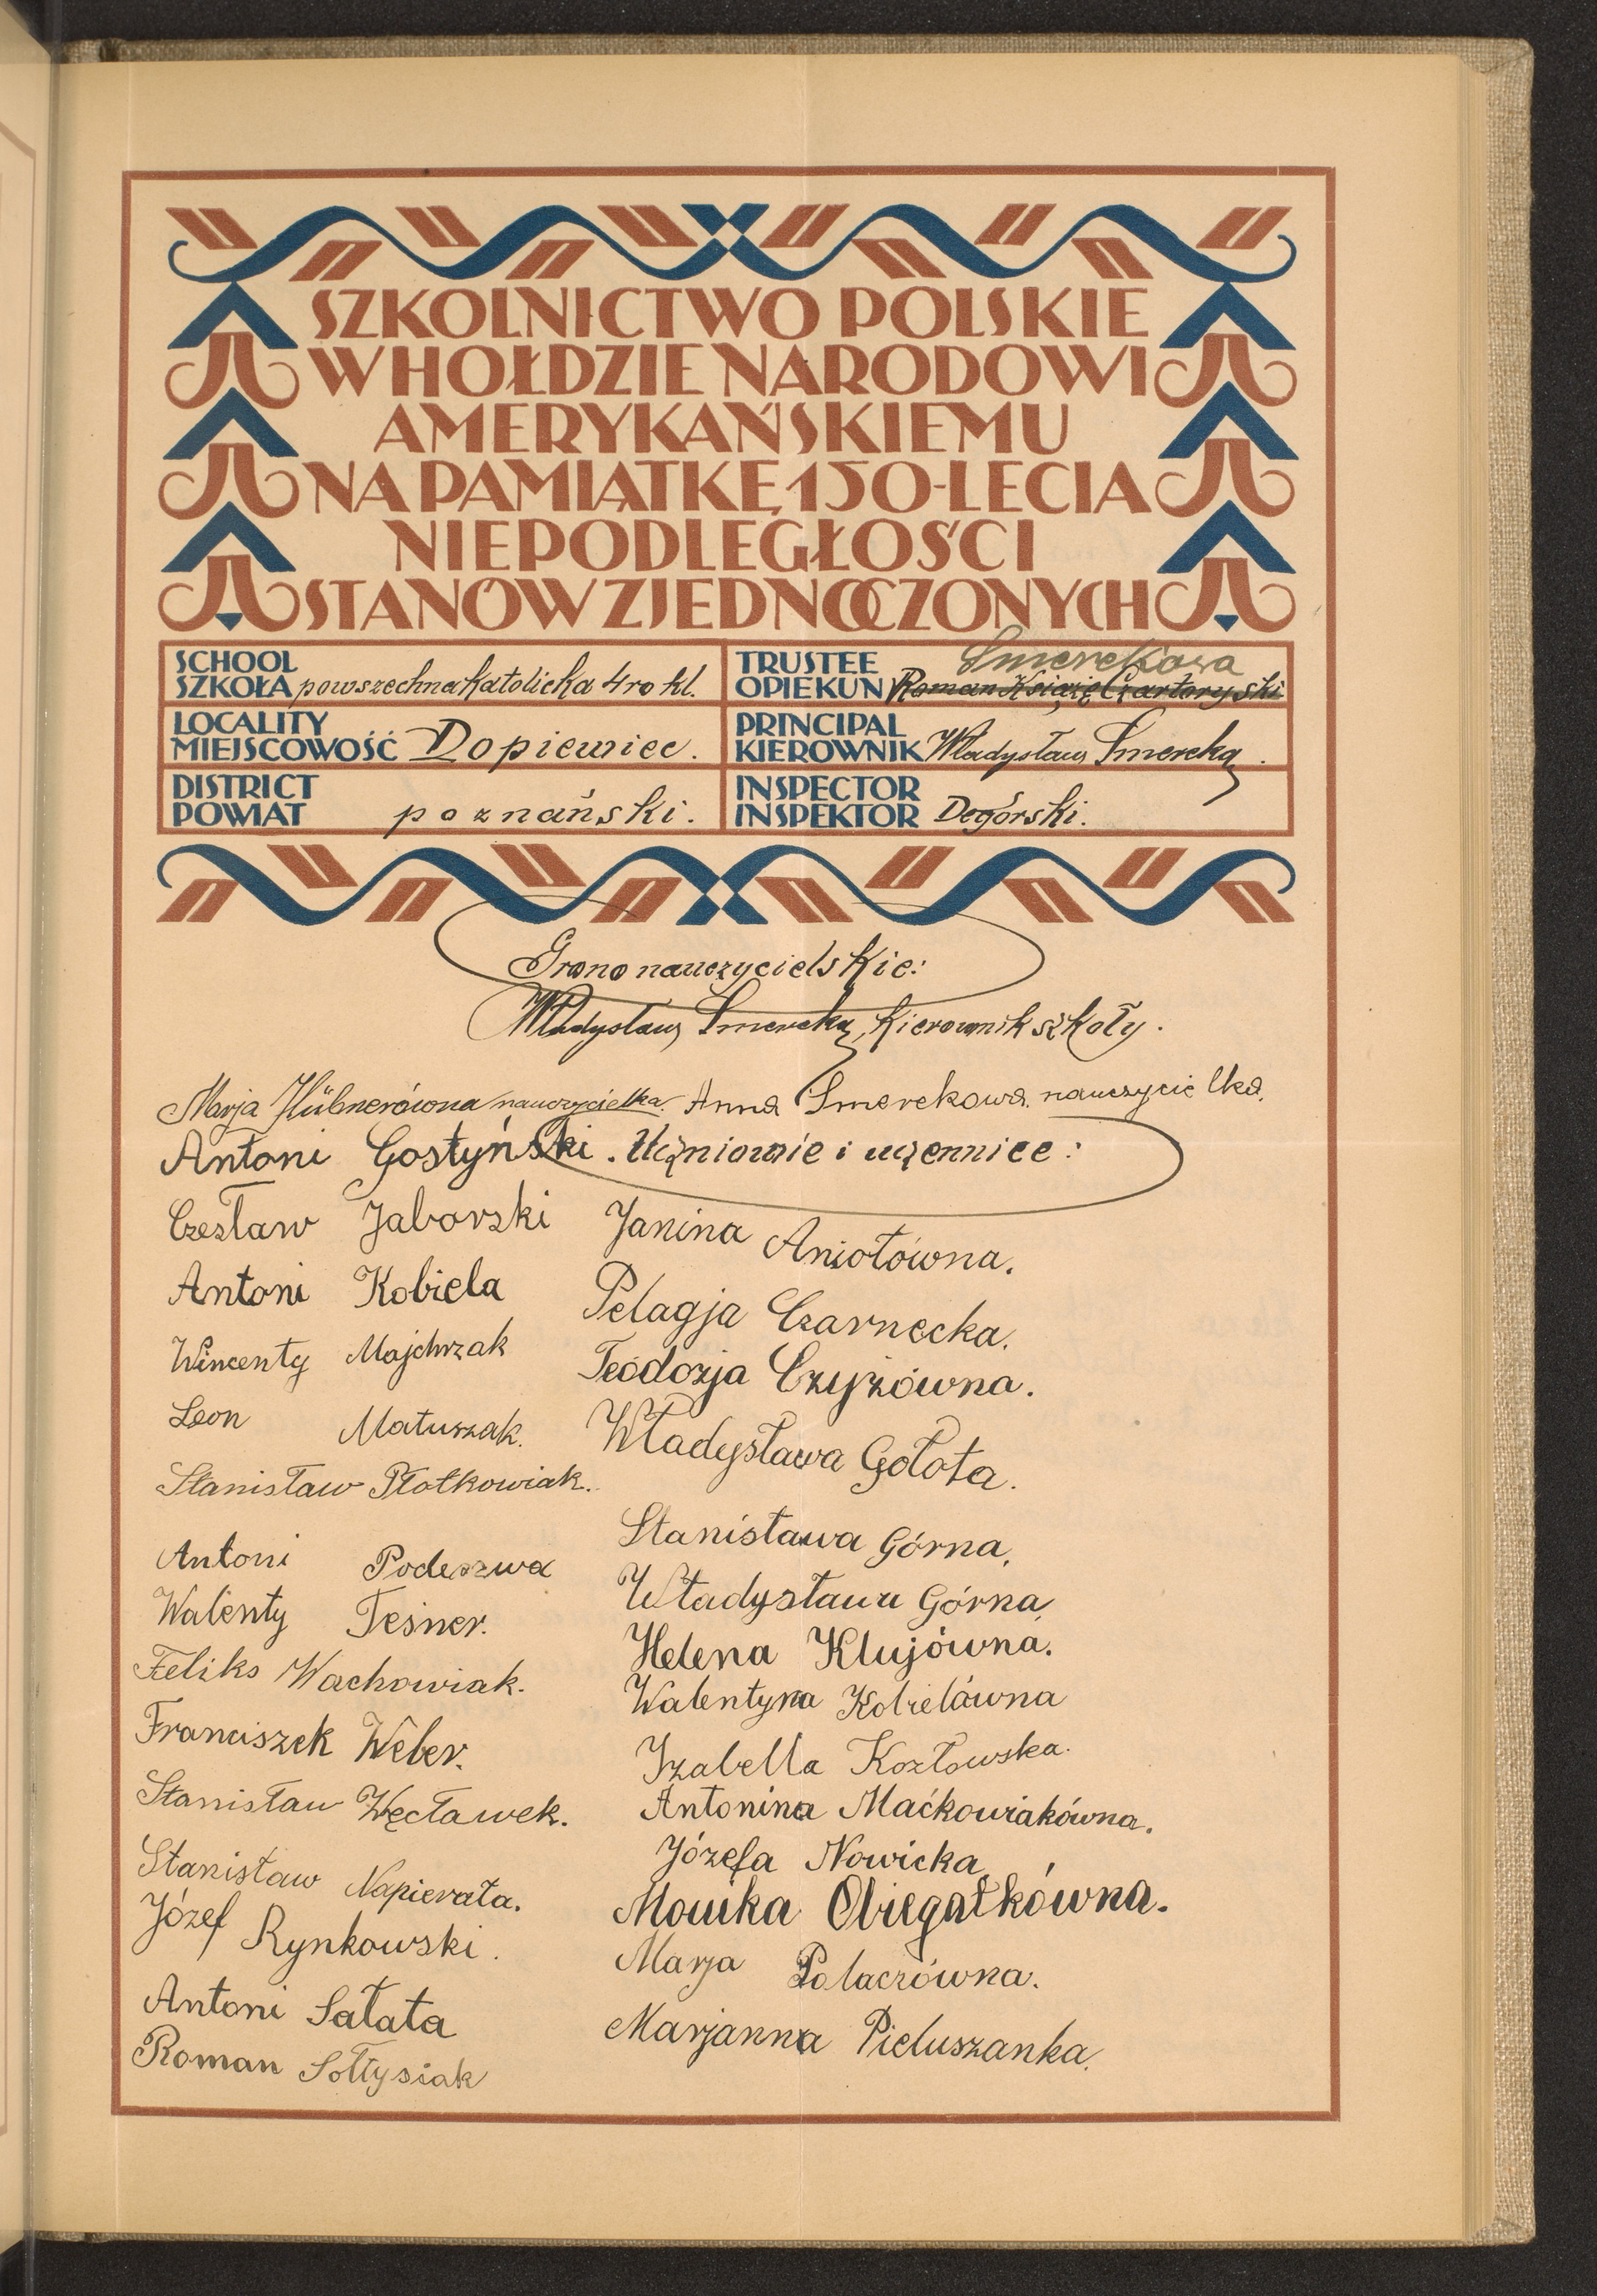 SZKOLNICTWO POLSKIE
W HOŁDZIE NARODOWI
AMERYKAŃSKIEMU
NA PAMIĄTKĘ 150-LECIA
NIEPODLEGŁOŚCI
STANÓW ZJEDNOCZONYCH
SCHOOL
SZKOŁA powszechna katolicka 4ro kl.
LOCALITY
MIEJSCOWOŚĆ Dopiewiec.
DISTRICT
POWIAT poznański.
TRUSTEE Smerekowa
OPIEKUN Roman Książę Czartoryski
PRINCIPAL
KIEROWNIK Władysław Smereka.
INSPECTOR
INSPEKTOR Degórski.
Grono nauczycielskie:
Władysław Smereka, kierownik szkoły.
Marja Hübnerówna nauczycielka. Anna Smerekowa. nauczycielka.
Antoni Gostyński. Uczniowie i uczennice:
Czesław Jaborski
Antoni Kobiela
Wincenty Majchrzak
Leon Matuszak.
Stanisław Płotkowiak.
Antoni Podeszwa
Walenty Teśner.
Feliks Wachowiak.
Franciszek Weber.
Stanisław Węcławek.
Stanisław Napierała.
Józef Rynkowski.
Antoni Sałata
Roman Sołtysiak
Janina Aniołówna.
Pelagja Czarnecka.
Teodozja Czyżówna.
Władysława Gołota.
Stanisława Górna.
Władysława Górna.
Helena Klujówna.
Walentyna Kobielówna
Izabella Kozłowska.
Antonina Maćkowiakówna.
Józefa Nowicka.
Monika Obiegałkówna.
Marja Polaczówna.
Marjanna Pieluszanka.